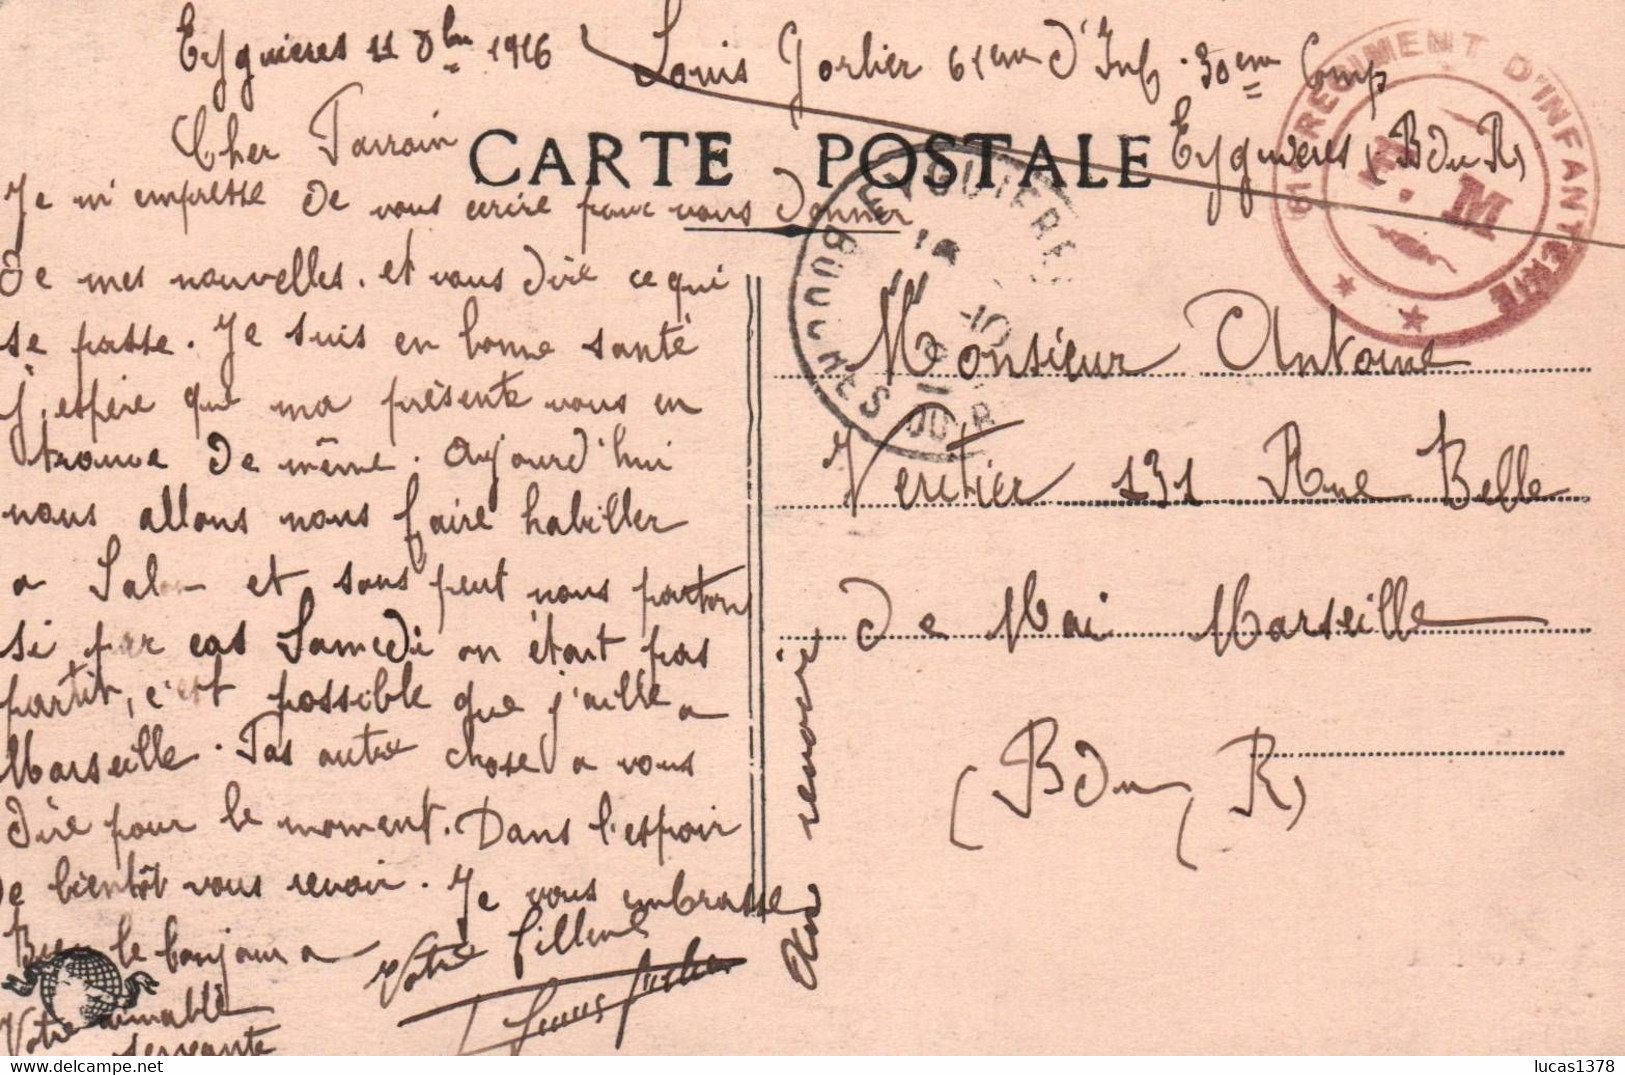 Eyguières 11 8bre 1916
Louis Gorlier 61eme d'Inf. 30eme Comp
Eyguières (B du R)
61E REGIMENT D'INFANTERIE
M
CARTE POSTALE
EYGUIERES
BOUCHES DU R
Cher Parrain
Je m'empresse de vous ecrire pour vous donner
de mes nouvelles. et vous dire ce qui
se passe. Je suis en bonne santé
j'espère que ma présente vous en
trouve de même. Aujourd'hui
nous allons nous faire habiller
a Salon et sans peut nous partons
si par cas Samedi on était pas
partit, c'est possible que j'aille a
Marseille. Pas autre chose a vous
dire pour le moment. Dans l'espoir
de bientôt vous revoir. Je vous embrasse
Bien le bonjour a
Votre aimable
servante
Votre filleul
Louis Gorlier
Au revoir
Monsieur Antoine
Veritier 131 Rue Belle
de Mai Marseille
(B du R)
lucas1378